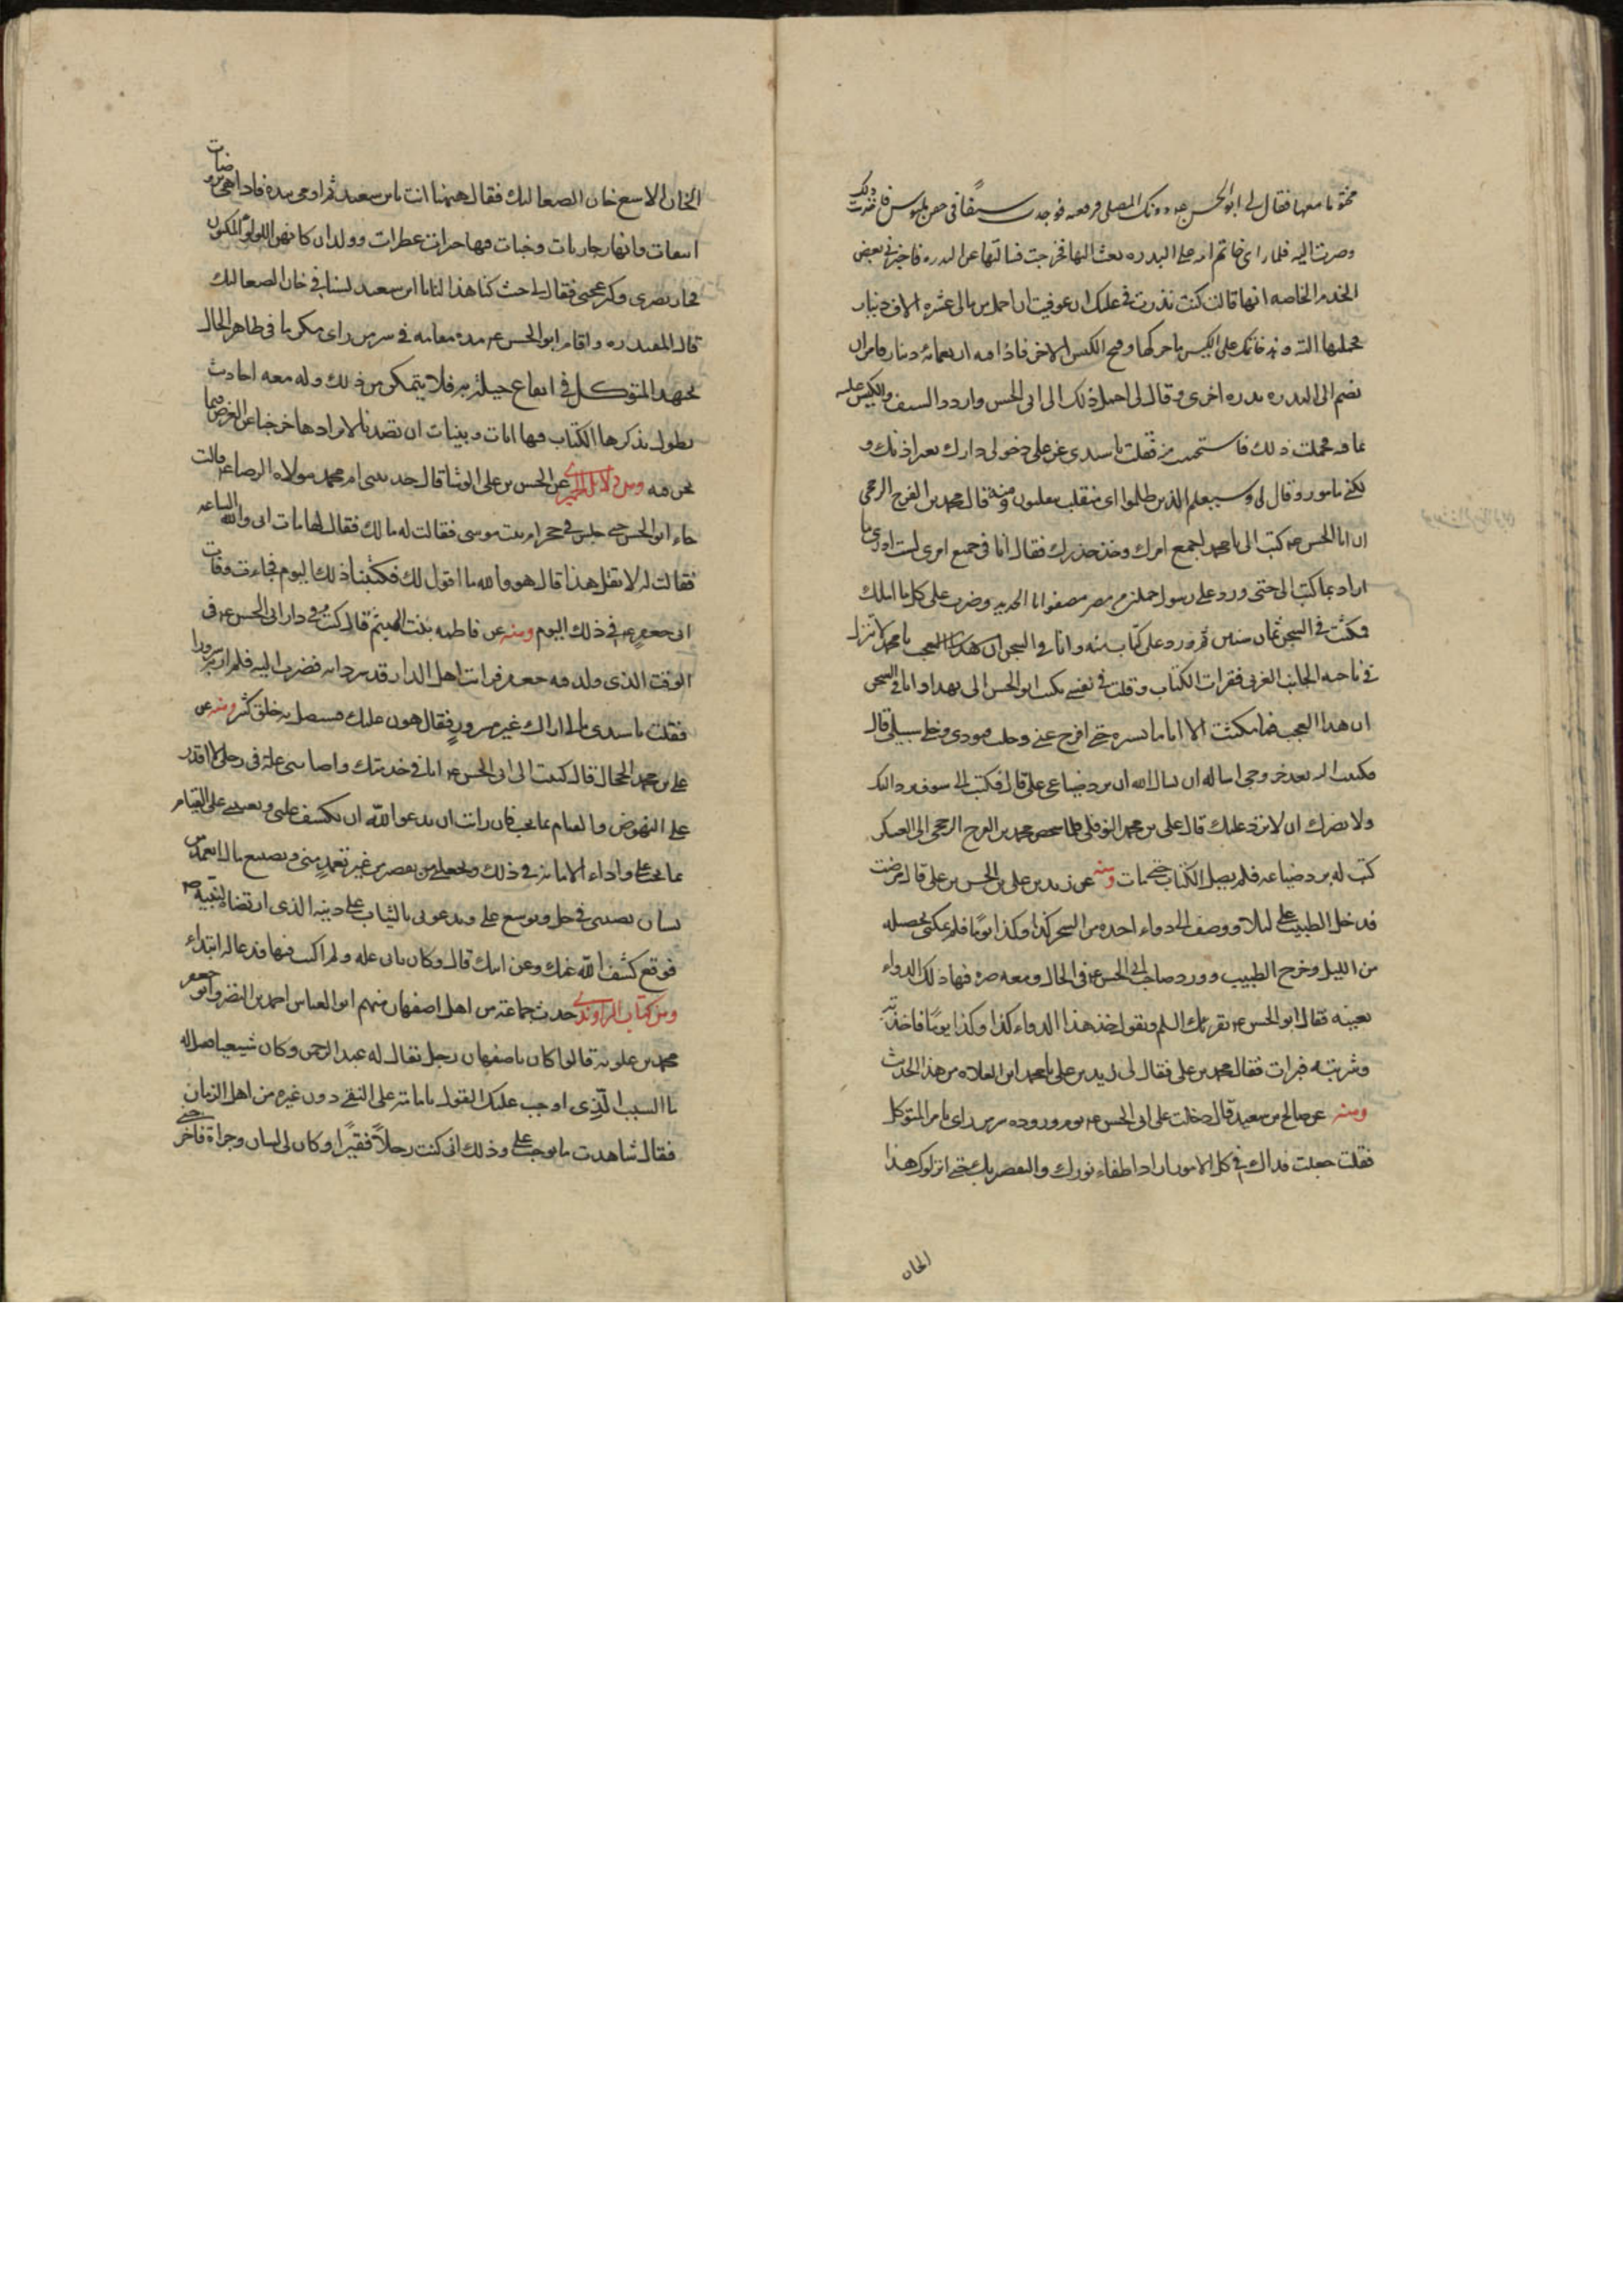 مختوما معها فقال لي ابو الحسن عه دونك المصلى فرفعه فوجدت سيفا في جفن ملبوس فاخذت ذلك
وصرت اليه فلما راى خاتم امه على البدره بعث اليها فخرجت فسالها عن البدره فاخبرني بعض
الخدم الخاصه انها قالت كنت نذرت في علتك ان عوفيت ان احمل من مالي عشره الاف دينار
فحملتها اليه وهذ خاتمك على الكيس ما حركها وفتح الكيس الاخر فاذا فيه اربعمائه دينار فامر ان
يضم الى البدره بدره اخرى وقال لي احمل ذلك الى ابى الحسن واردد السيف والكيس عليه
بما فيه فحملت ذلك فاستحييت منه فقلت يا سيدى عز على دخولى دارك بغير اذنك و
لكني مامور وقال لي وسيعلم الذين ظلموا اى منقلب ينقلبون ومنه قال محمد بن الفرج الرخجى
ان ابا الحسن عه كتب الى يا محمد اجمع امرك وخذ حذرك فقال انا في جميع امرى لست ادرى ما
اراد بما كتب الى حتى ورد على رسول حملني من مصر مصفدا بالحديد وضرب على كل ما املك
فمكثت في السجن ثمان سنين ثم ورد على كتاب منه وانا في السجن يا محمد لا تنزل
في ناحيه الجانب الغربى فقرات الكتاب وقلت في نفسي يكتب ابو الحسن الى بهذا وانا في السجن
ان هذا العجب فما مكثت الا اياما يسيره حتى افرج عني وحلت قيودى وخلي سبيلي قال
فكتبت اليه بعد خروجى اساله ان يسال الله ان يرد ضياعى على قال فكتب الي سوف يرد اليك
ولا يضرك ان لا ترد عليك قال على بن محمد النوفلى فلما شخص محمد بن الفرج الرخجى الى العسكر
كتب له برد ضياعه فلم يصل الكتاب حتى مات ومنه عن زيد بن على بن الحسن بن على قال مرضت
فدخل الطبيب علي ليلا ووصف لي دواء اخذه من السحر كذا وكذا يوما فلم يمكني تحصيله
من الليل وخرج الطبيب وورد صاحب ابى الحسن عه في الحال ومعه صره فيها ذلك الدواء
بعينه فقال ابو الحسن عه يقرئك السلم ويقول خذ هذا الدواء كذا وكذا يوما فاخذته
وشربته فبرات فقال محمد بن على فقال لي زيد بن على يا محمد اين الغلاه من هذا الحديث
ومنه عن صالح بن سعيد قال دخلت على ابى الحسن عه يوم وروده سر من راى بامر المتوكل
فقلت جعلت فداك في كل الامور ارادوا اطفاء نورك والتقصير بك حتى انزلوك هذا
الخان
الخان الاشنع خان الصعاليك فقال ههنا انت يا بن سعيد ثم اومى بيده فاذا هي بروضات
انيقات وانهار جاريات وجنات فيها خيرات عطرات وولدان كانهن اللولو المكنون
فحار بصرى وكثر عجبى فقال لي حيث كنا هذا لنا يا ابن سعيد لسنا في خان الصعاليك
قال المفيد ره واقام ابو الحسن عه مده مقامه في سر من راى مكرما في ظاهر الحال
يجتهد المتوكل في ايقاع حيلة به فلا يتمكن من ذلك وله معه احاديث
يطول بذكرها الكتاب فيها ايات وبينات ان قصدنا لايرادها خرجنا عن الغرض فيما
نحن فيه ومن دلائل الحميري عن الحسن بن على الوشا قال حدثتني ام محمد مولاه الرضا عه قالت
جاء ابو الحسن حتى جلس في حجر ام بنت موسى فقالت له ما لك فقال لها مات ابى والله الساعه
فقالت له لا تقل هذا قال هو والله ما اقول لك فكتبنا ذلك اليوم فجاءت وفات
ابى جعفر عه في ذلك اليوم ومنه عن فاطمه بنت الهيثم قال كنت في دار ابى الحسن عه في
الوقت الذى ولد فيه جعفر فرايت اهل الدار قد سروا به فصرت اليه فلم ار به سرورا
فقلت يا سيدى مالي اراك غير مسرور فقال هون عليك فسيضل به خلق كثير ومنه عن
علي بن محمد الحجال قال كتبت الى ابى الحسن عه انا في خدمتك واصابني علة في رجلى لا اقدر
علي النهوض والقيام بما يجب فان رايت ان يدعو الله ان يكشف علتي ويعينني على القيام
بما يجب علي واداء الامانة في ذلك ويجعلني من تقصيرى من غير تعمد مني وتضييع مال اتعمده من
نسيان يصيبني في حل ويوسع علي ويدعو لي بالثبات علي دينه الذى ارتضاه لنبيه ص
فوقع كشف الله عنك وعن ابيك قال وكان بابى علة ولم اكتب فيها فدعا له ابتداء
ومن كتاب الراوندي حدث جماعة من اهل اصفهان منهم ابو العباس احمد بن النضر وابو جعفر
محمد بن علويه قالوا كان باصفهان رجل يقال له عبد الرحمن وكان شيعيا قيل له
ما السبب الذى اوجب عليك القول بامامة على النقي دون غيره من اهل الزمان
فقال شاهدت ما يوجب علي وذلك انى كنت رجلا فقيرا وكان لى لسان وجراة فاخرجني